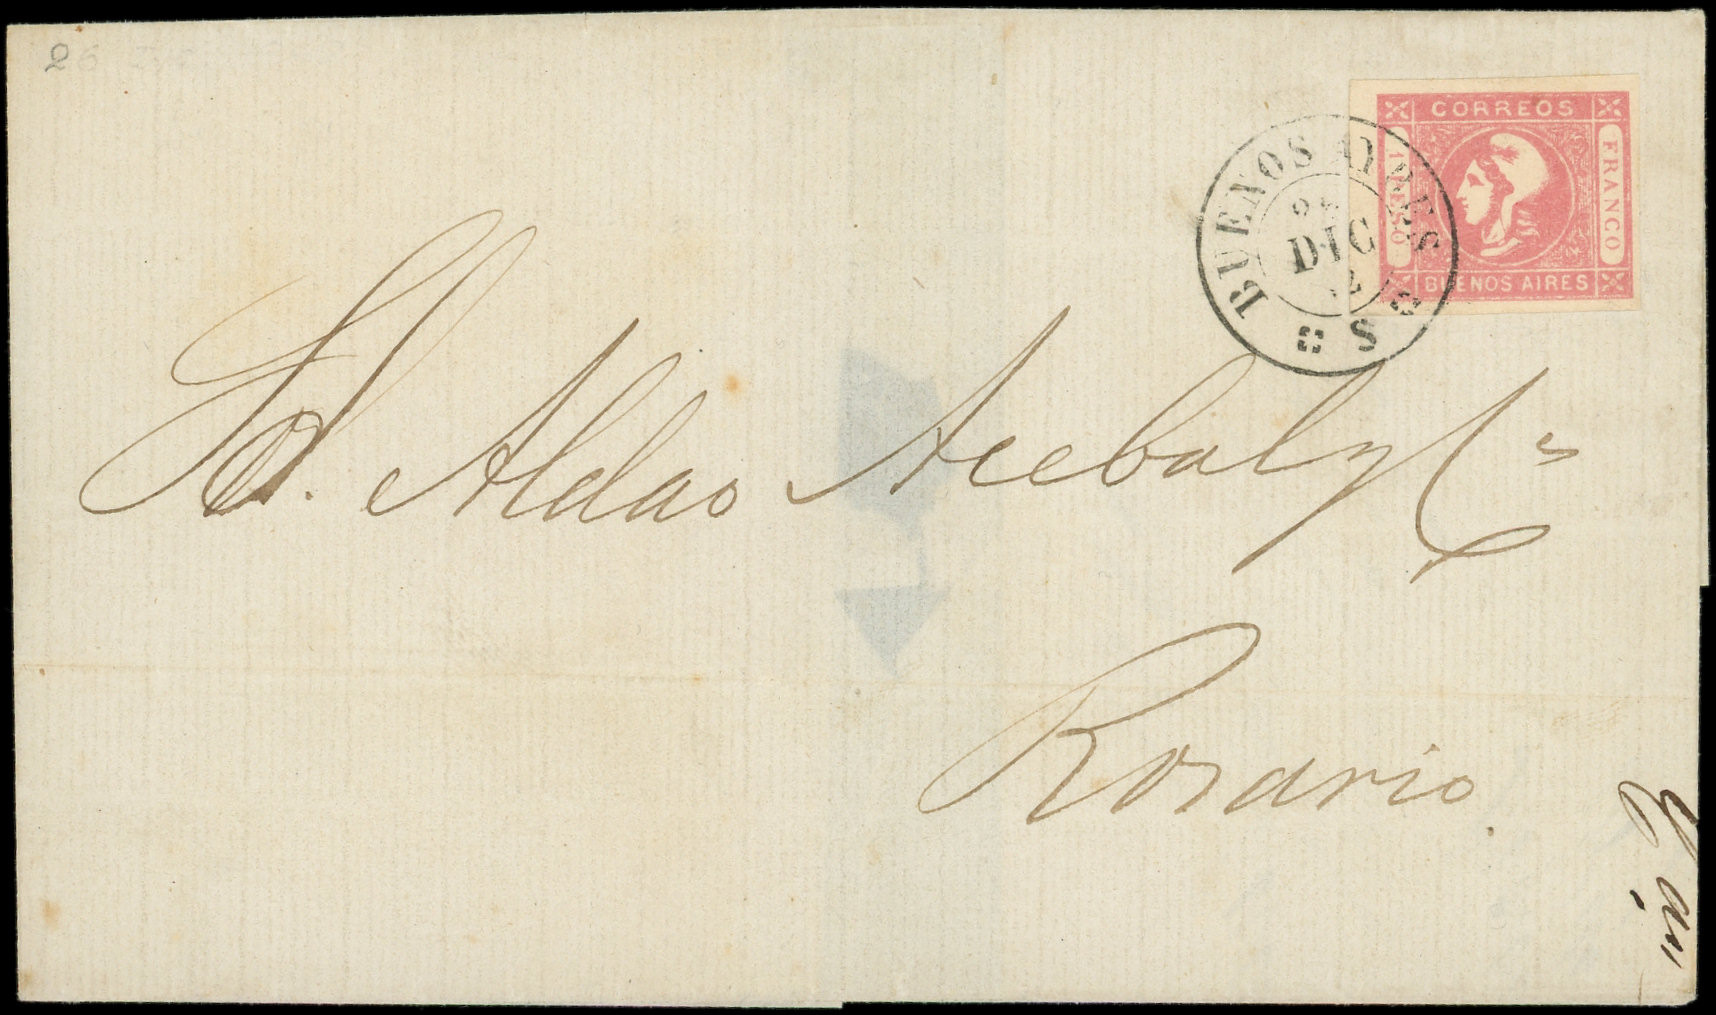 26
CORREOS
1 PESO
FRANCO
BUENOS AIRES
BUENOS AIRES
DIC
S
Aldao Acebal y Ca
Rosario.